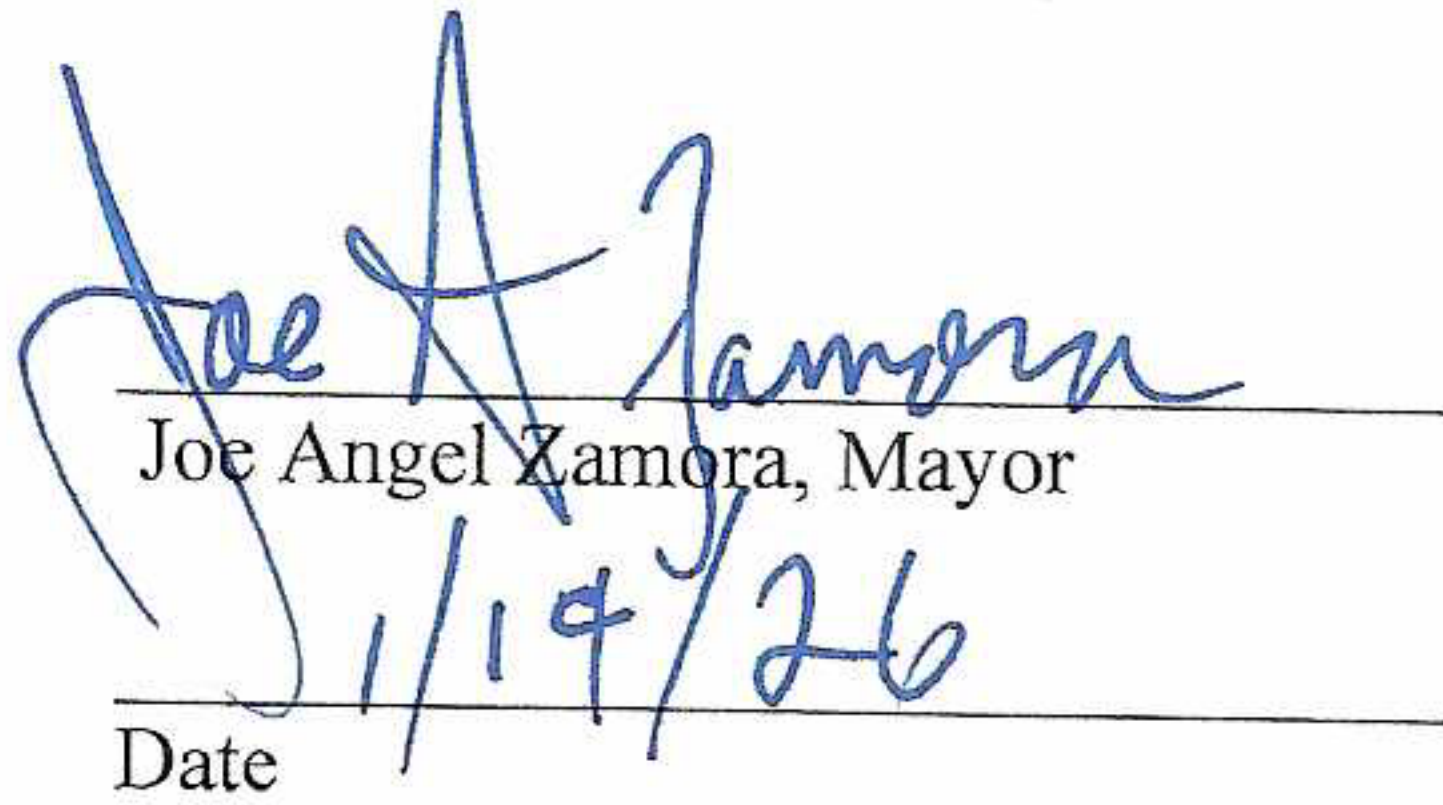 Joe A Zamora
Joe Angel Zamora, Mayor
1/14/26
Date